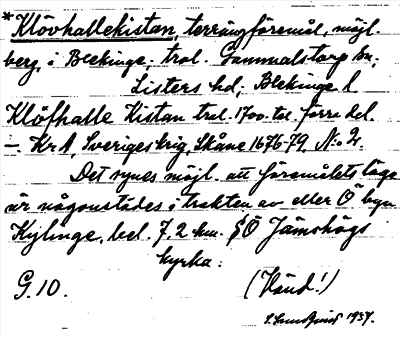 *Klövhallekistan, terrängföremål, möjl.
berg, i Blekinge; trol. Gammalstorp sn,
Listers hd, Blekinge l
Klöfhalle Kistan trol. 1700-tal. förra del.
–. KrA, Sverigeskrig, Skåne 1676-79, N:o 2.
Det synes möjl. att föremålets läge
är någonstädes i trakten av eller Ö byn
Kylinge, bel. 7,2 km. SÖ Jämshögs
kyrka.
G. 10. (Vänd!)
1937.